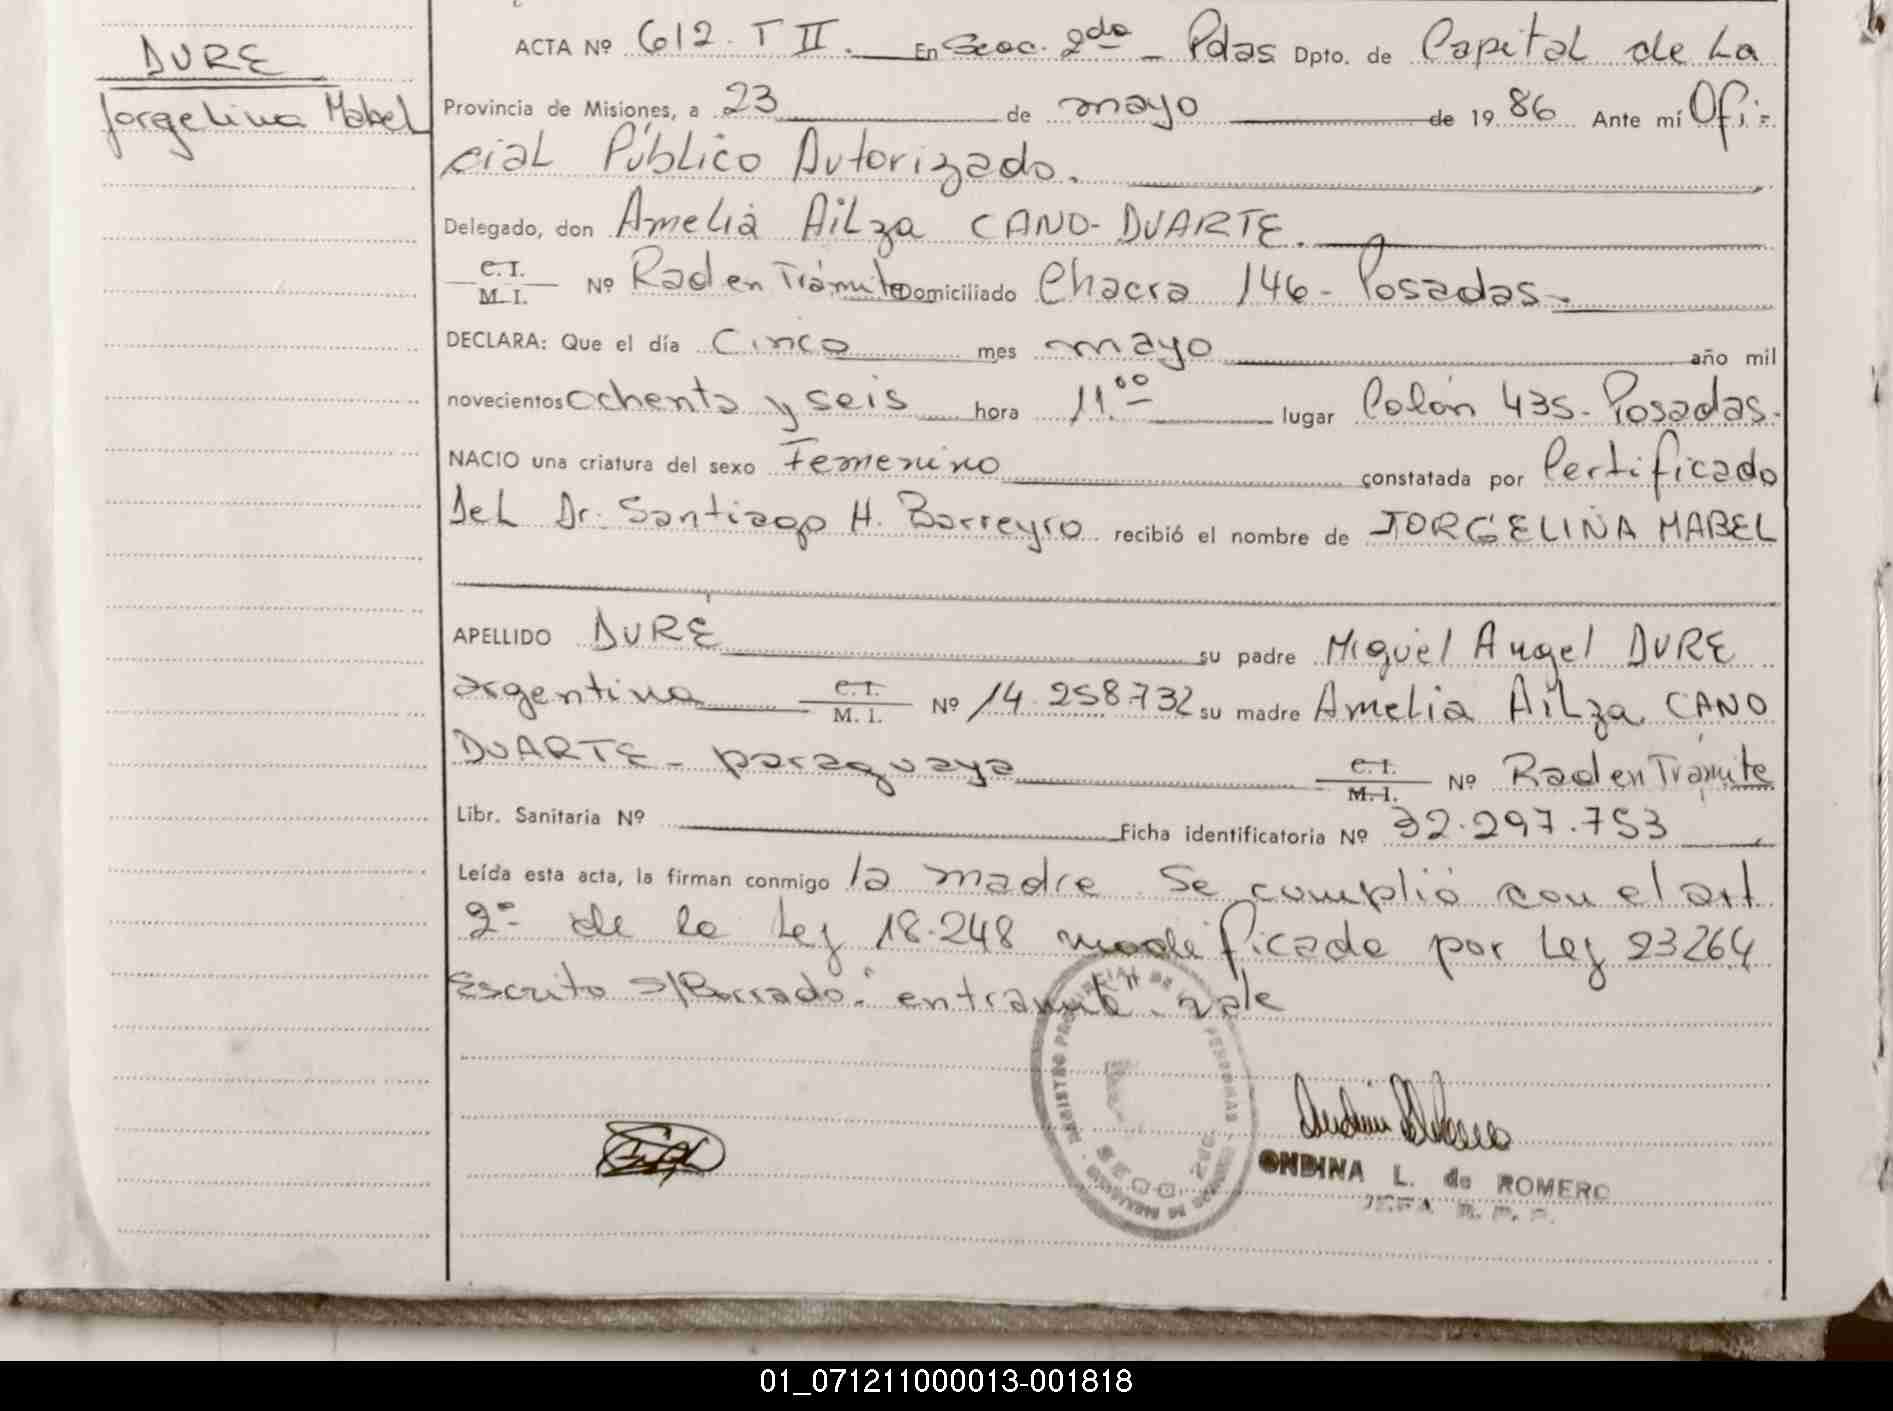 DURE
Jorgelina Mabel
ACTA Nº 612. T II. En Secc. 2da - Pdas Dpto. de Capital de La
Provincia de Misiones, a 23 de mayo de 1986 Ante mí Ofi-
cial Público Autorizado.
Delegado, don Amelia Ailza CANO-DUARTE.
C.I.
M.I. Nº Rad en Trámite Domiciliado Chacra 146 - Posadas -
DECLARA: Que el día Cinco mes mayo año mil
novecientos ochenta y seis hora 11.00 lugar Colón 435 - Posadas.
NACIO una criatura del sexo Femenino constatada por Certificado
Del Dr. Santiago H. Barreyro recibió el nombre de JORGELINA MABEL
APELLIDO DURE su padre Miguel Angel DURE
argentina C.I.
M.I. Nº 14.258.732 su madre Amelia Ailza CANO
DUARTE - paraguaya C.I.
M.I. Nº Rad en Tramite
Libr. Sanitaria Nº Ficha identificatoria Nº 32.297.753
Leída esta acta, la firman conmigo la madre. Se cumplió con el art
2º de la Ley 18.248 modificada por Ley 23264
Escrito s/Borrado: "en tramite". vale
REGISTRO PROVINCIAL DE LAS PERSONAS
SECC. 2da.
ONDINA L. de ROMERO
JEFA
01_071211000013-001818